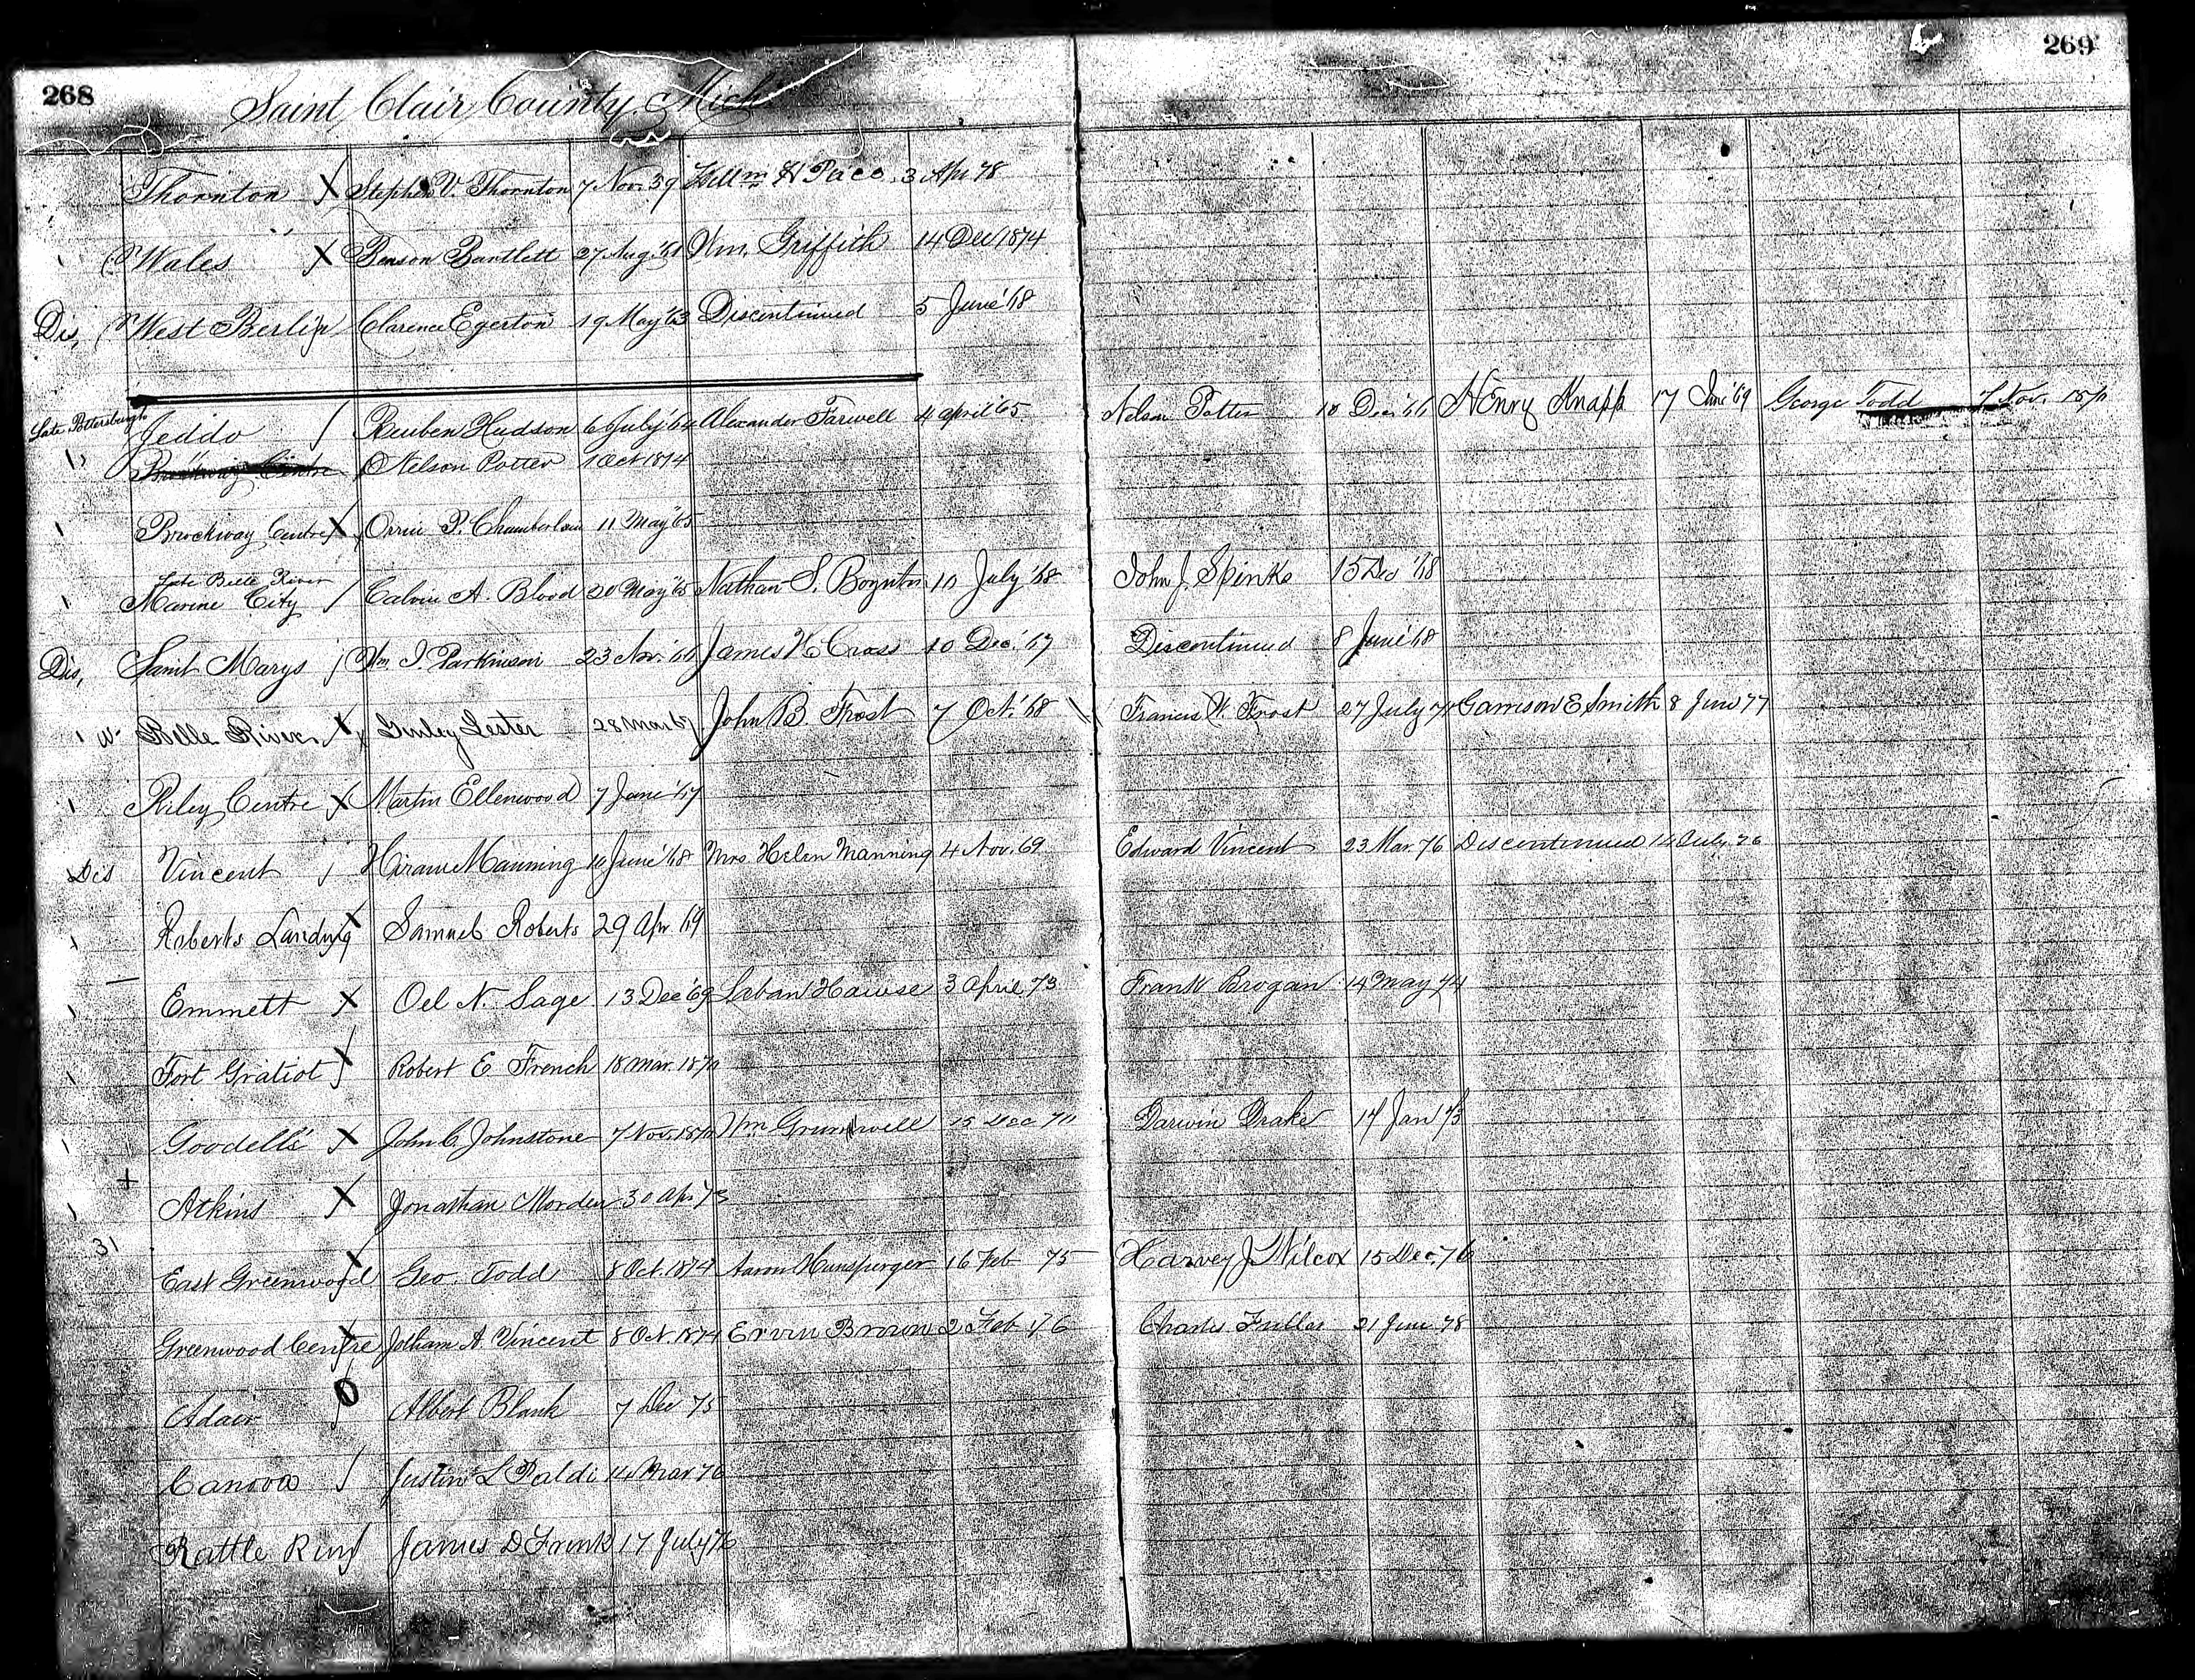 268
269
Saint Clair County Mich
Thornton X Stephen V. Thornton 7 Nov. 59 Willm H Pace 3 Apr 78
Wales X Benson Bartlett 27 Aug. '61 Wm. Griffith 14 Dec 1874
Dis, West Berlin Clarence Egerton 19 May '63 Discontinued 5 June '68
Late Pottersburgh
Jeddo Reuben Hudson 6 July '64 Alexander Farwell 4 April '65 Nelson Potter 18 Dec. '66 Henry Knapp 17 '69 George Todd 7 Nov. 1870
Brockway Centre Nelson Potter 1 Oct 1874
Brockway Centre X Orrin P. Chamberlain 11 May '65
Late Belle River
Marine City Calvin A. Blood 20 May '65 Nathan S. Boynton 10 July '68 John J. Spinks 15 Dec '68
Dis, Saint Marys Wm. I. Parkinson 23 Nov. '66 James W Cross 10 Dec. '67 Discontinued 8 June '68
Belle River X Lester 28 Mar 67 John B Frost 7 Oct. '68 Francis W. Frost 27 July Garrison E Smith 8 Jun 77
Riley Centre X Martin Ellenwood 7 June '67
Dis Vincent Hiram Manning 10 June '68 Mrs Helen Manning 4 Nov. 69 Edward Vincent 23 Mar. 76 Discontinued 14 July 76
Roberts Landing X Samuel Roberts 29 Apr 69
Emmett X Oel N. Sage 13 Dec '69 Laban Hawse 3 April 73 Frank Brogan 14 May 74
Fort Gratiot X Robert E French 18 Mar. 1870
Goodells X John C. Johnstone 7 Nov. 1870 Wm 15 Dec Darwin Drake 14 Jan 73
Atkins X Jonathan Morden 30 Apr 73
31
East Greenwood X Geo. Todd 8 Oct. 1874 Aaron Hunsperger 16 Feb 75 Harvey J Wilcox 15 Dec. 76
Greenwood Centre X Jotham A. Vincent 8 Oct. 1874 Ervin Brown 2 Feb 76 Charles Fuller 21 June 78
Adair Albert Blank 7 Dec 75
Canova Justin L Paldi Mar 76
Rattle Run James D Frink 17 July 76